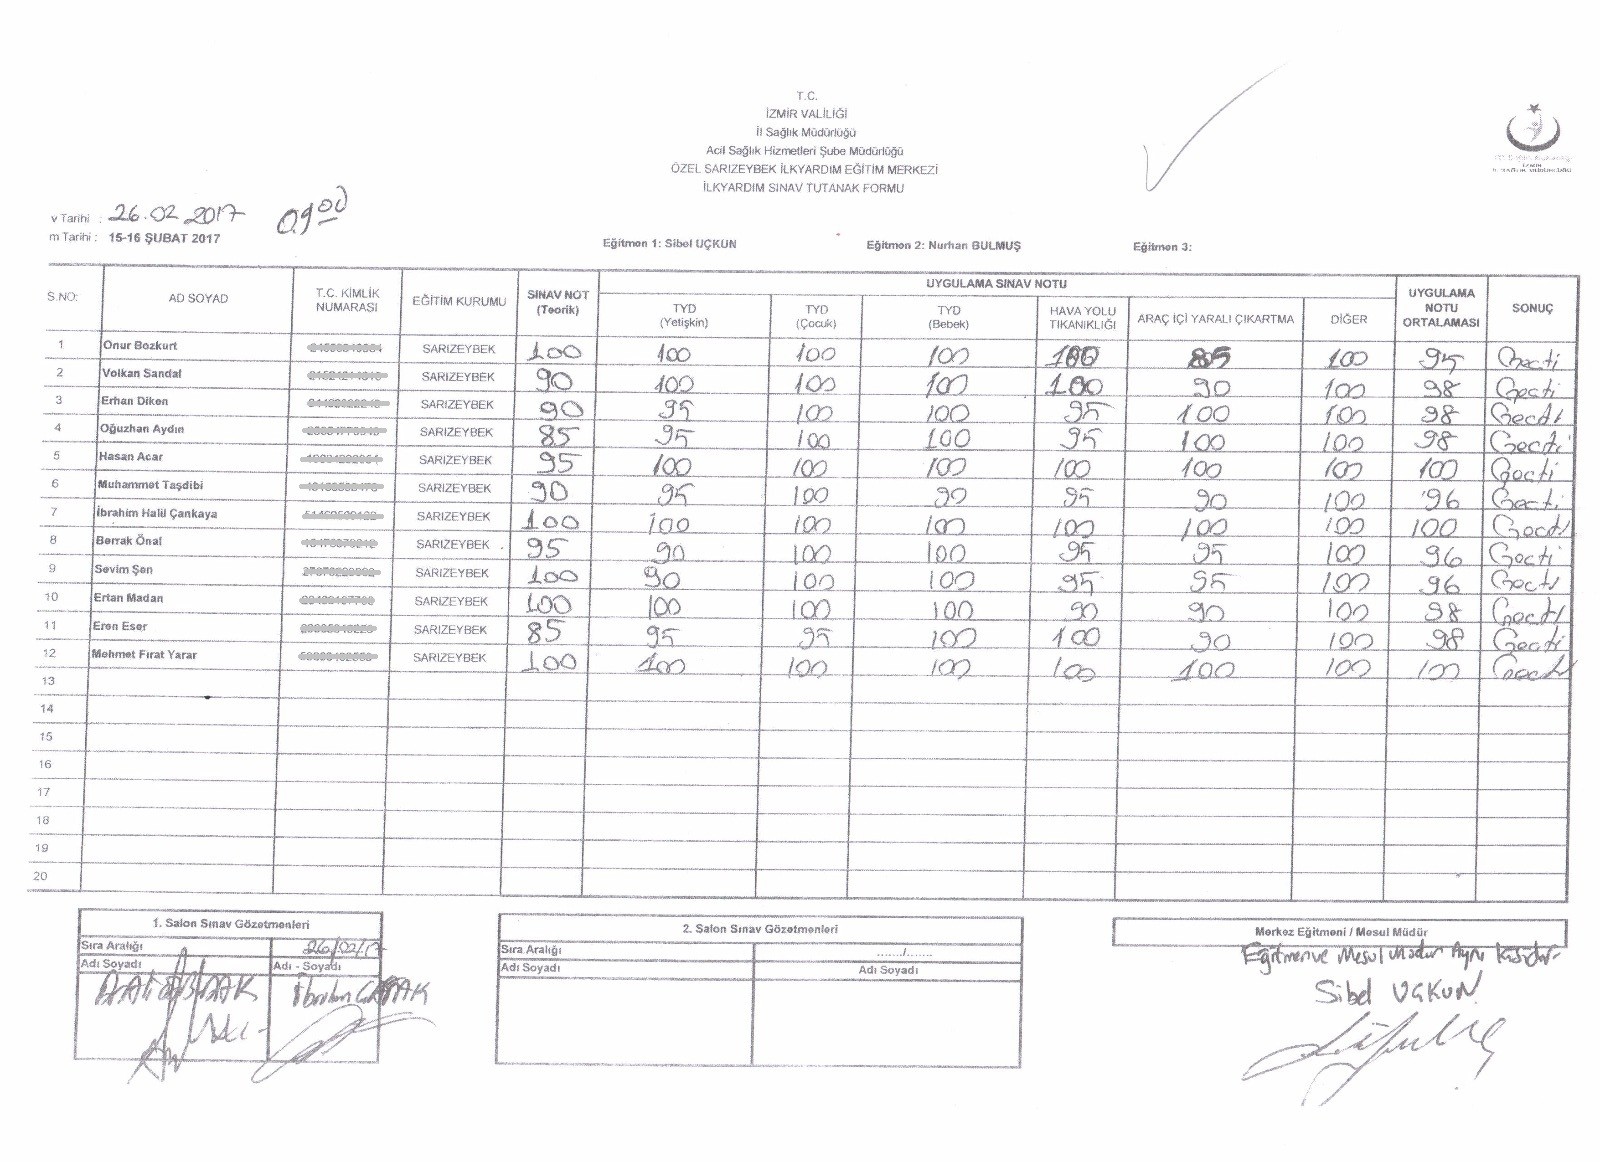 T.C.
İZMİR VALİLİĞİ
İl Sağlık Müdürlüğü
Acil Sağlık Hizmetleri Şube Müdürlüğü
ÖZEL SARIZEYBEK İLKYARDIM EĞİTİM MERKEZİ
İLKYARDIM SINAV TUTANAK FORMU
v Tarihi : 26.02 2017 09 00
m Tarihi : 15-16 ŞUBAT 2017
Eğitmen 1: Sibel UÇKUN Eğitmen 2: Nurhan BULMUŞ Eğitmen 3:
S.NO: AD SOYAD T.C. KİMLİK NUMARASI EĞİTİM KURUMU SINAV NOT (Teorik) UYGULAMA SINAV NOTU UYGULAMA NOTU ORTALAMASI SONUÇ
TYD (Yetişkin) TYD (Çocuk) TYD (Bebek) HAVA YOLU TIKANIKLIĞI ARAÇ İÇİ YARALI ÇIKARTMA DİĞER
1 Onur Bozkurt SARIZEYBEK 100 100 100 100 100 85 100 95 Geçti
2 Volkan Sandal SARIZEYBEK 90 100 100 100 100 90 100 98 Geçti
3 Erhan Diken SARIZEYBEK 90 95 100 100 95 100 100 98 Geçti
4 Oğuzhan Aydın SARIZEYBEK 85 95 100 100 95 100 100 98 Geçti
5 Hasan Acar SARIZEYBEK 95 100 100 100 100 100 100 100 Geçti
6 Muhammet Taşdibi SARIZEYBEK 90 95 100 90 95 90 100 96 Geçti
7 İbrahim Halil Çankaya SARIZEYBEK 100 100 100 100 100 100 100 100 Geçti
8 Berrak Önal SARIZEYBEK 95 90 100 100 95 95 100 96 Geçti
9 Sevim Şen SARIZEYBEK 100 90 100 100 95 95 100 96 Geçti
10 Ertan Madan SARIZEYBEK 100 100 100 100 90 90 100 98 Geçti
11 Eren Eser SARIZEYBEK 85 95 95 100 100 90 100 98 Geçti
12 Mehmet Fırat Yarar SARIZEYBEK 100 100 100 100 100 100 100 100 Geçti
13
14
15
16
17
18
19
20
1. Salon Sınav Gözetmenleri
Sıra Aralığı 26/02/17
Adı Soyadı Adı - Soyadı
İbrahim
2. Salon Sınav Gözetmenleri
Sıra Aralığı ......./.......
Adı Soyadı Adı Soyadı
Merkez Eğitmeni / Mesul Müdür
Eğitmen ve Mesul Müdür Aynı Kişidir
Sibel UÇKUN